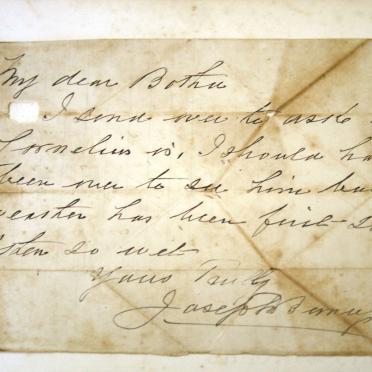 My dear Botha
I send over to ask
Cornelius is, I should ha
been over to see him bu
has been first
so wet
Yours Truly
Joseph